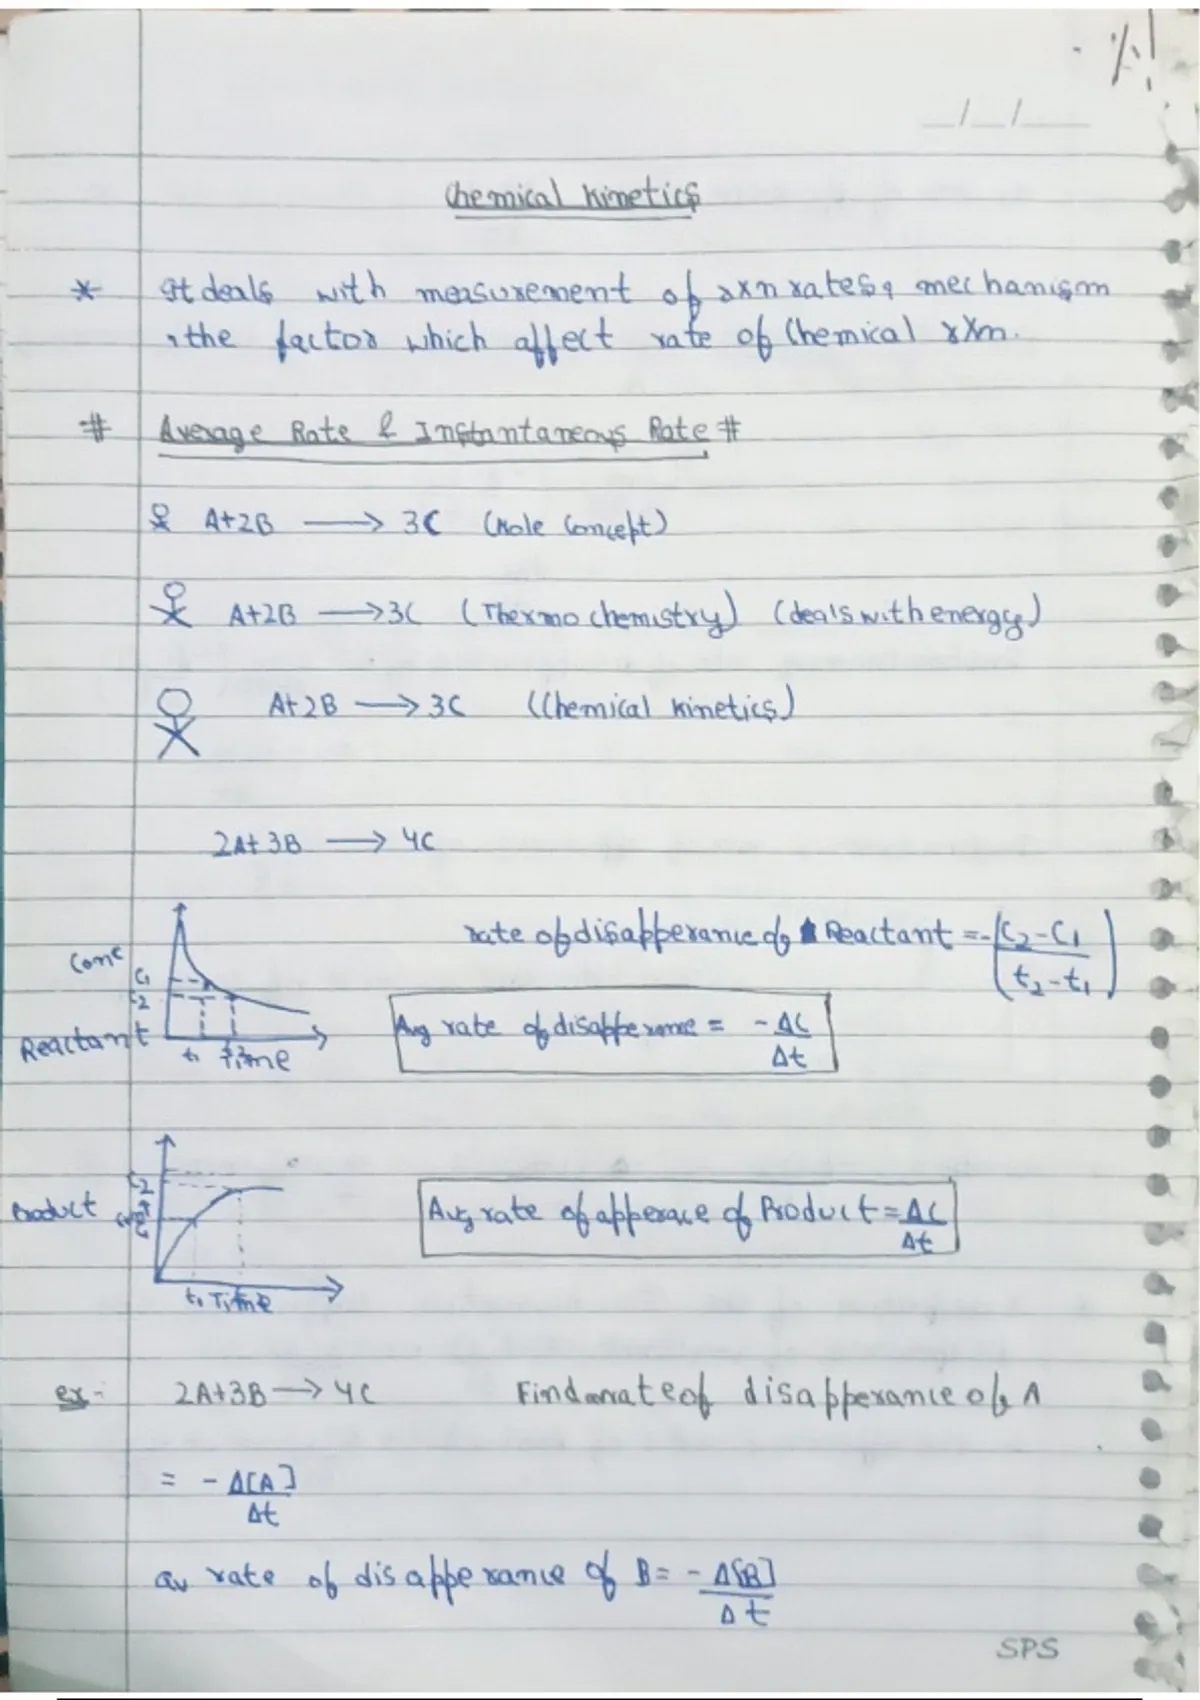 __/__/____
Chemical Kinetics
* It deals with measurement of rxn rates, mechanism
, the factor which affect rate of Chemical rxn.
# Average Rate & Instantaneous Rate #
A+2B ⟶ 3C (Mole Concept)
A+2B ⟶ 3C (Thermo chemistry) (deals with energy)
A+2B ⟶ 3C (Chemical kinetics)
2A+3B ⟶ 4C
rate of disapperance of Reactant = -(C2-C1 / t2-t1)
Conc
C1
C2
Reactant
t1 t2
Time
Avg rate of disapperance = -ΔC/Δt
C2
Product
C1
t1 Time
Avg rate of apperace of Product = ΔC/Δt
ex- 2A+3B ⟶ 4C Find rate of disapperance of A
= -Δ[A]/Δt
av rate of disapperance of B = -Δ[B]/Δt
SPS